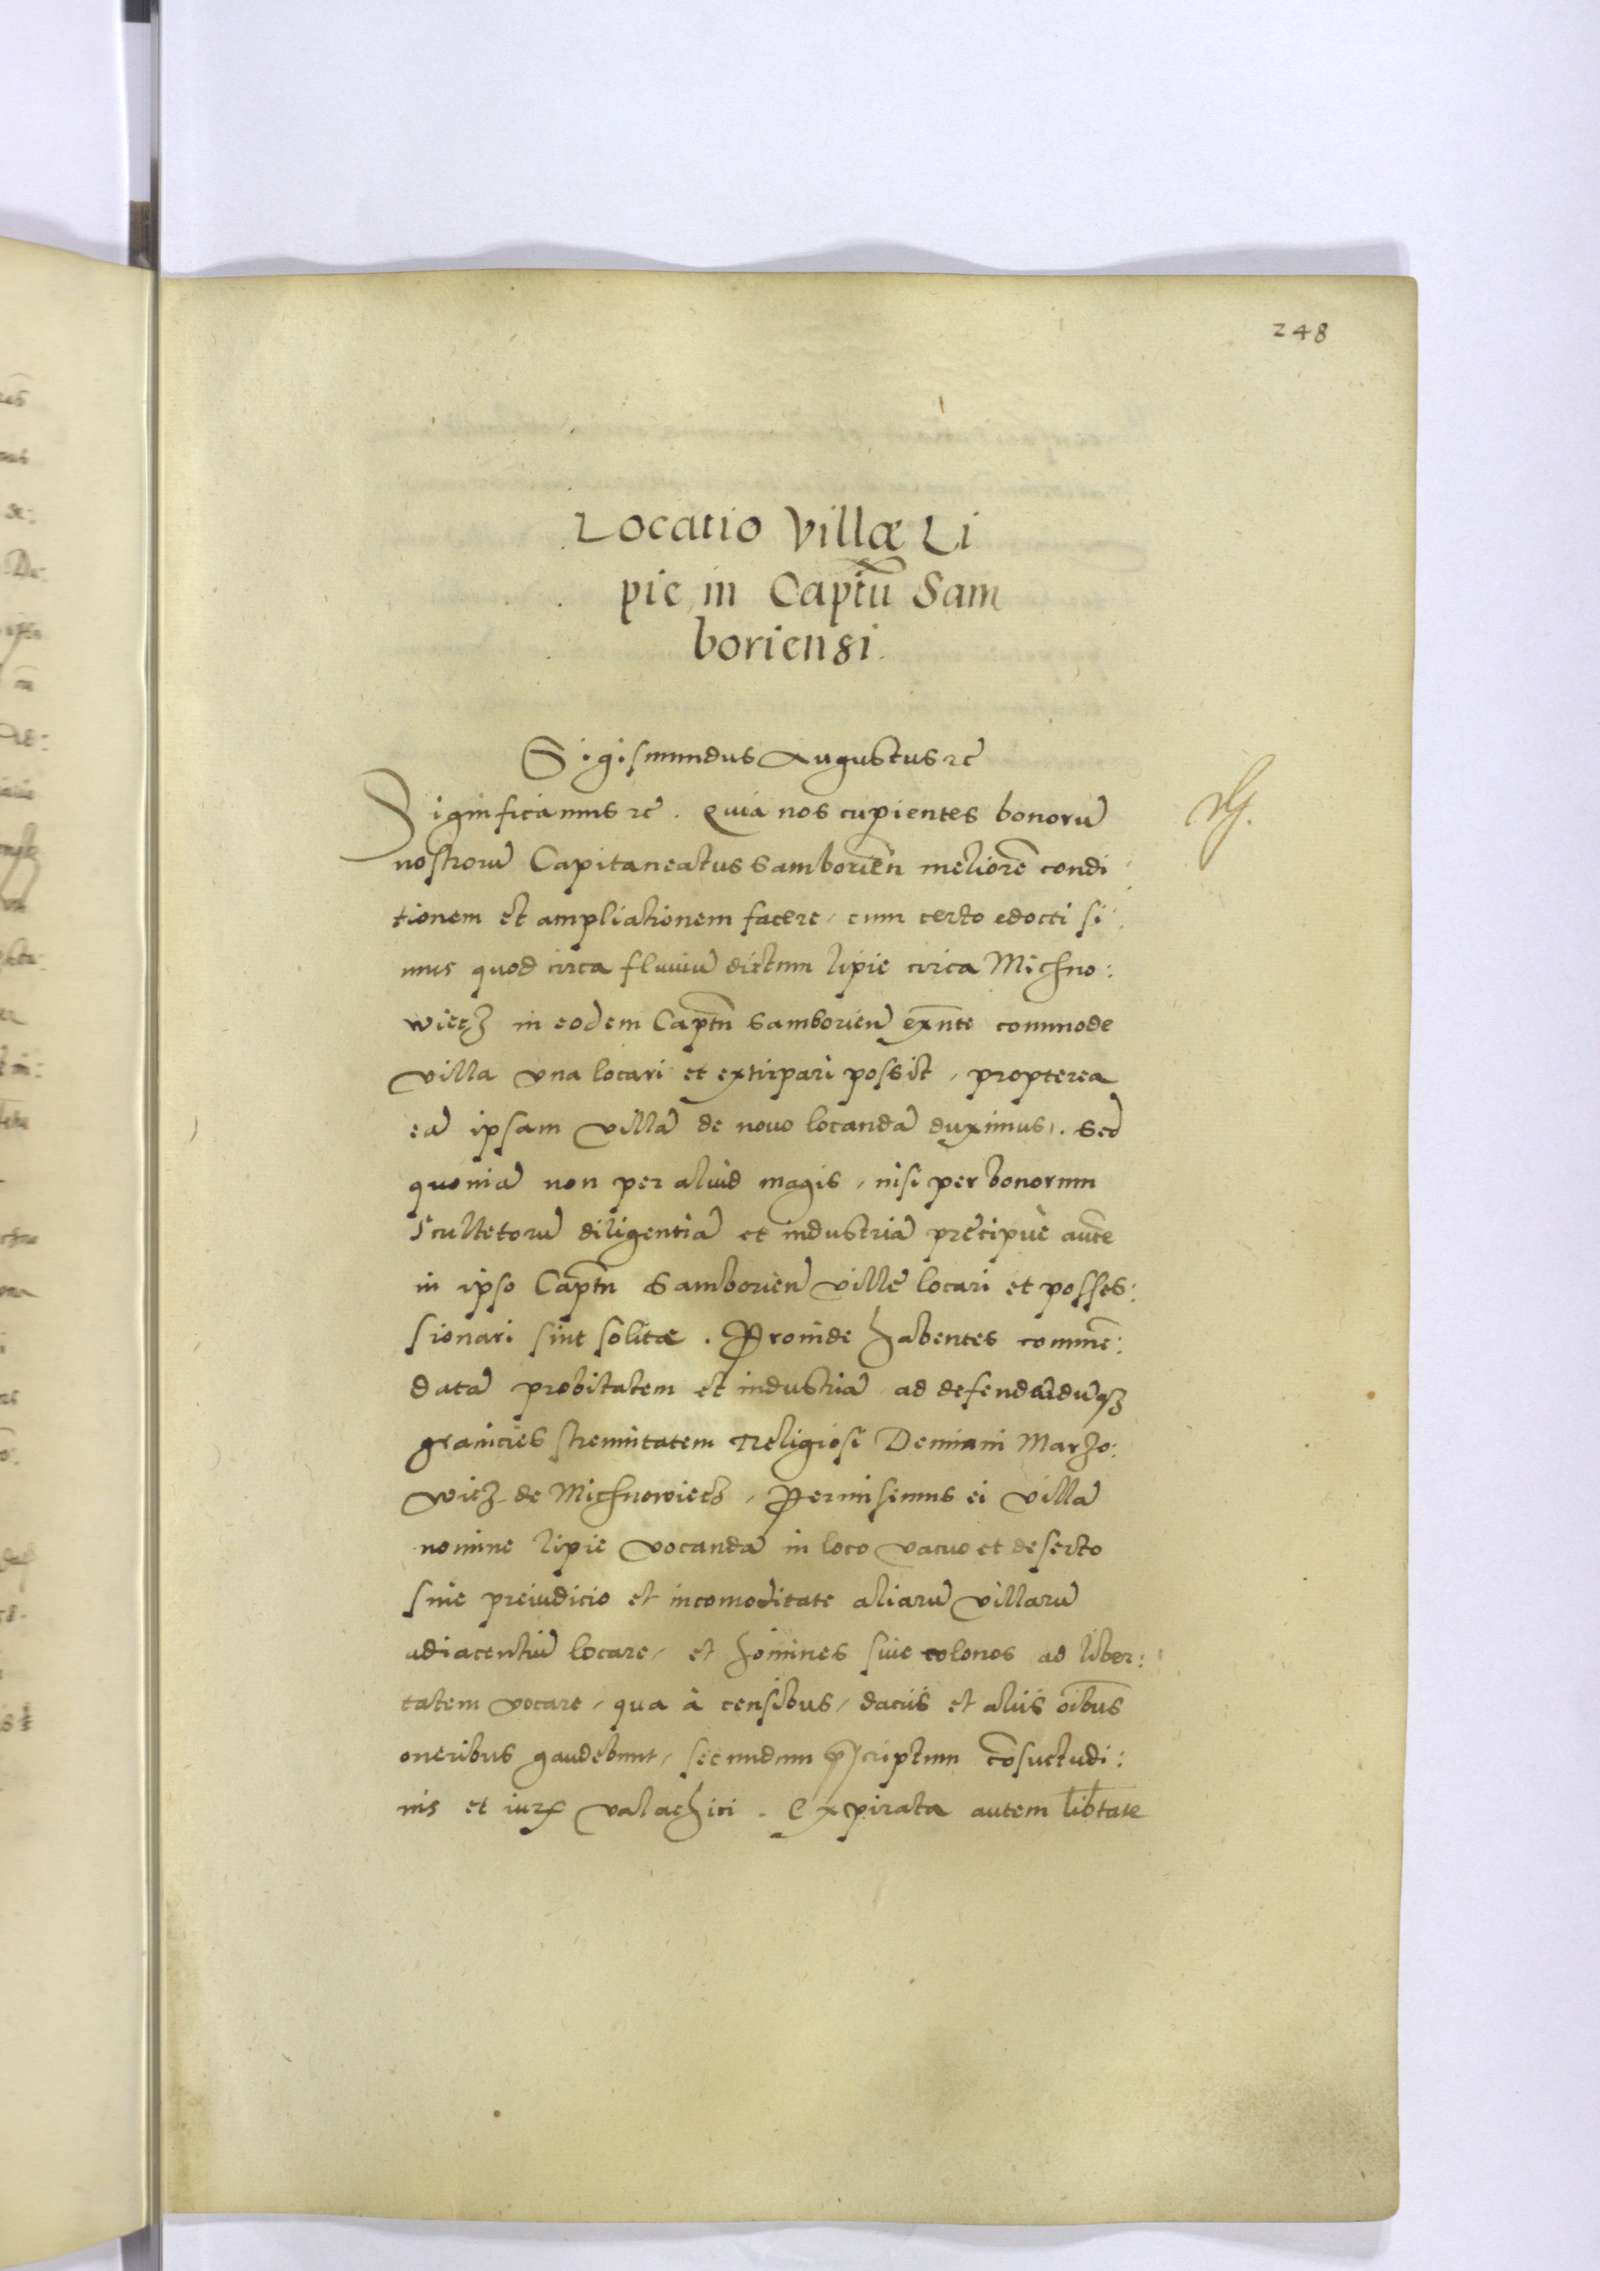 248
Locatio Villæ Li
pie in Captū Sam
boriensi.
Sigismundus Augustus rc̄
Significamus rc̄. Quia nos cupientes bonorū
nostrorū Capitaneatus Samborien̄ meliorē condi
tionem et ampliationem facere, cum certo edocti si
mus quod circa fluuiū dictum lipie circa Michno:
wiecz in eodem Captū Samborien̄ exn̄te commode
villa vna locari et extirpari possit, propterea
eā ipsam villā de nouo locandā duximus. Sed
quoniā non per aliud magis, nisi per bonorum
Scultetorū diligentiā et industriā precipuè autē
in ipso Captū Samborien̄ ville locari et posses:
sionari sint solitæ. Proinde habentes commē:
datā probitatem et industriā ad defendāduqꝫ
granicies strenuitatem Religiosi Demiani Marko:
wicz de Michnowiecz, Permisimus ei villā
nomine lipie vocandā in loco vacuo et deserto
sine preiudicio et incomoditate aliarū villarū
adiacentiū locare, et homines siue colonos ad liber:
tatem vocare, qua à censibus, daciis et aliis oībus
oneribus gaudebunt, secundum p̄scriptum cōsuetudi:
nis et iurꝭ valachici. Expirata autem lib̄tate